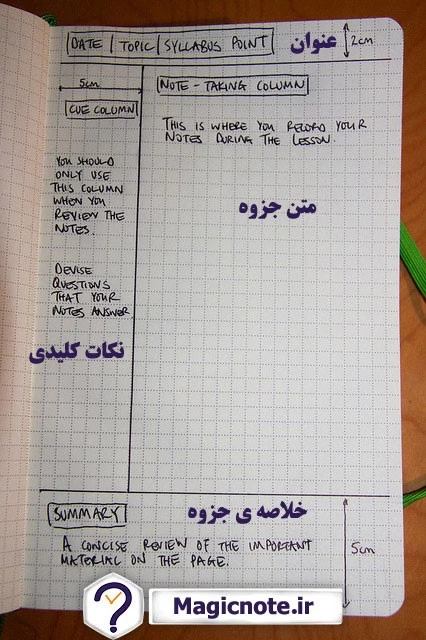 DATE | TOPIC | SYLLABUS POINT
عنوان
2cm
5cm
CUE COLUMN
YOU SHOULD
ONLY USE
THIS COLUMN
WHEN YOU
REVIEW THE
NOTES.
DEVISE
QUESTIONS
THAT YOUR
NOTES ANSWER
نکات کلیدی
NOTE - TAKING COLUMN
THIS IS WHERE YOU RECORD YOUR
NOTES DURING THE LESSON.
متن جزوه
SUMMARY
خلاصه ی جزوه
A CONCISE REVIEW OF THE IMPORTANT
MATERIAL ON THE PAGE.
5cm
Magicnote.ir